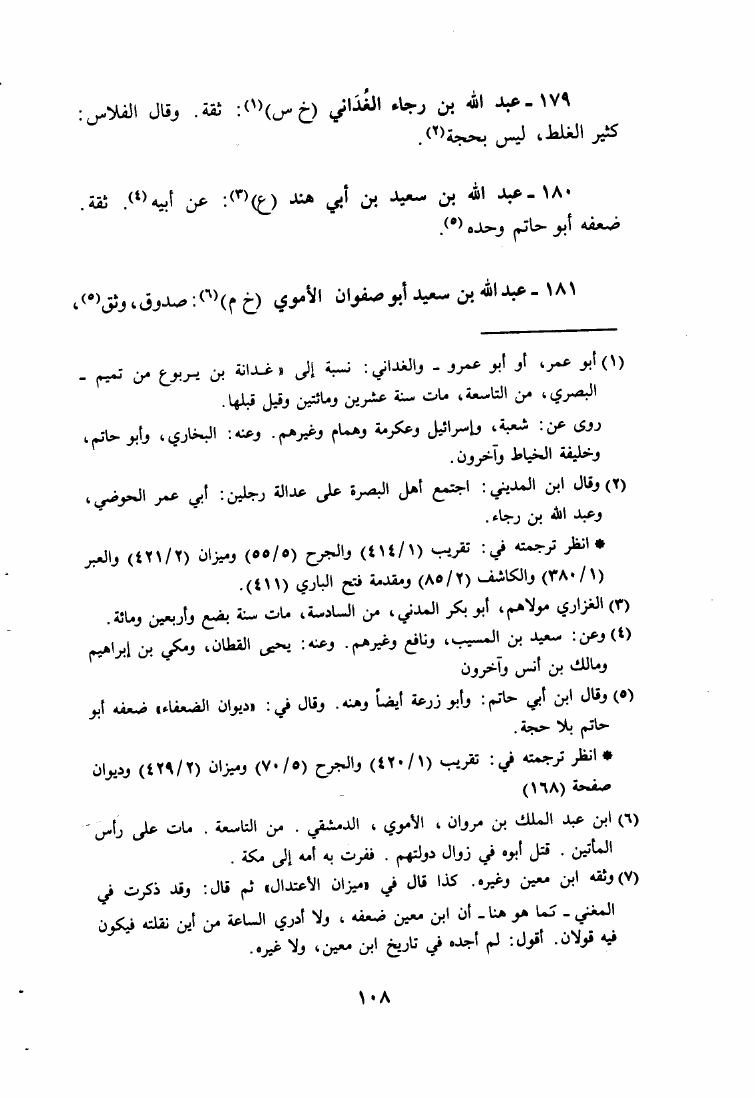 ١٧٩ ـ عبد الله بن رجاء الغُدَاني (خ س)(١): ثقة. وقال الفلاس:
كثير الغلط، ليس بحجة(٢).
١٨٠ ـ عبد الله بن سعيد بن أبي هند (ع)(٣): عن أبيه(٤). ثقة.
ضعفه أبو حاتم وحده(٥).
١٨١ ـ عبد الله بن سعيد أبو صفوان الأموي (خ م)(٦): صدوق، وثق(٥)،
(١) أبو عمر، أو أبو عمرو ـ والغداني: نسبة إلى «غدانة بن يربوع من تميم ـ
البصري، من التاسعة، مات سنة عشرين ومائتين وقيل قبلها.
روى عن: شعبة، وإسرائيل وعكرمة وهمام وغيرهم. وعنه: البخاري، وأبو حاتم،
وخليفة الخياط وآخرون.
(٢) وقال ابن المديني: اجتمع أهل البصرة على عدالة رجلين: أبي عمر الحوضي،
وعبد الله بن رجاء.
* انظر ترجمته في: تقريب (٤١٤/١) والجرح (٥٥/٥) وميزان (٤٢١/٢) والعبر
(٣٨٠/١) والكاشف (٨٥/٢) ومقدمة فتح الباري (٤١١).
(٣) الغزاري مولاهم، أبو بكر المدني، من السادسة، مات سنة بضع وأربعين ومائة.
(٤) وعن: سعيد بن المسيب، ونافع وغيرهم. وعنه: يحيى القطان، ومكي بن إبراهيم
ومالك بن أنس وآخرون
(٥) وقال ابن أبي حاتم: وأبو زرعة أيضاً وهنه. وقال في: «ديوان الضعفاء» ضعفه أبو
حاتم بلا حجة.
* انظر ترجمته في: تقريب (٤٢٠/١) والجرح (٧٠/٥) وميزان (٤٢٩/٢) وديوان
صفحة (١٦٨)
(٦) ابن عبد الملك بن مروان، الأموي، الدمشقي. من التاسعة. مات على رأس
المأتين. قتل أبوه في زوال دولتهم. ففرت به أمه إلى مكة.
(٧) وثقه ابن معين وغيره. كذا قال في «ميزان الأعتدال» ثم قال: وقد ذكرت في
المغني ـ كما هو هنا ـ أن ابن معين ضعفه، ولا أدري الساعة من أين نقلته فيكون
فيه قولان. أقول: لم أجده في تاريخ ابن معين، ولا غيره.
١٠٨